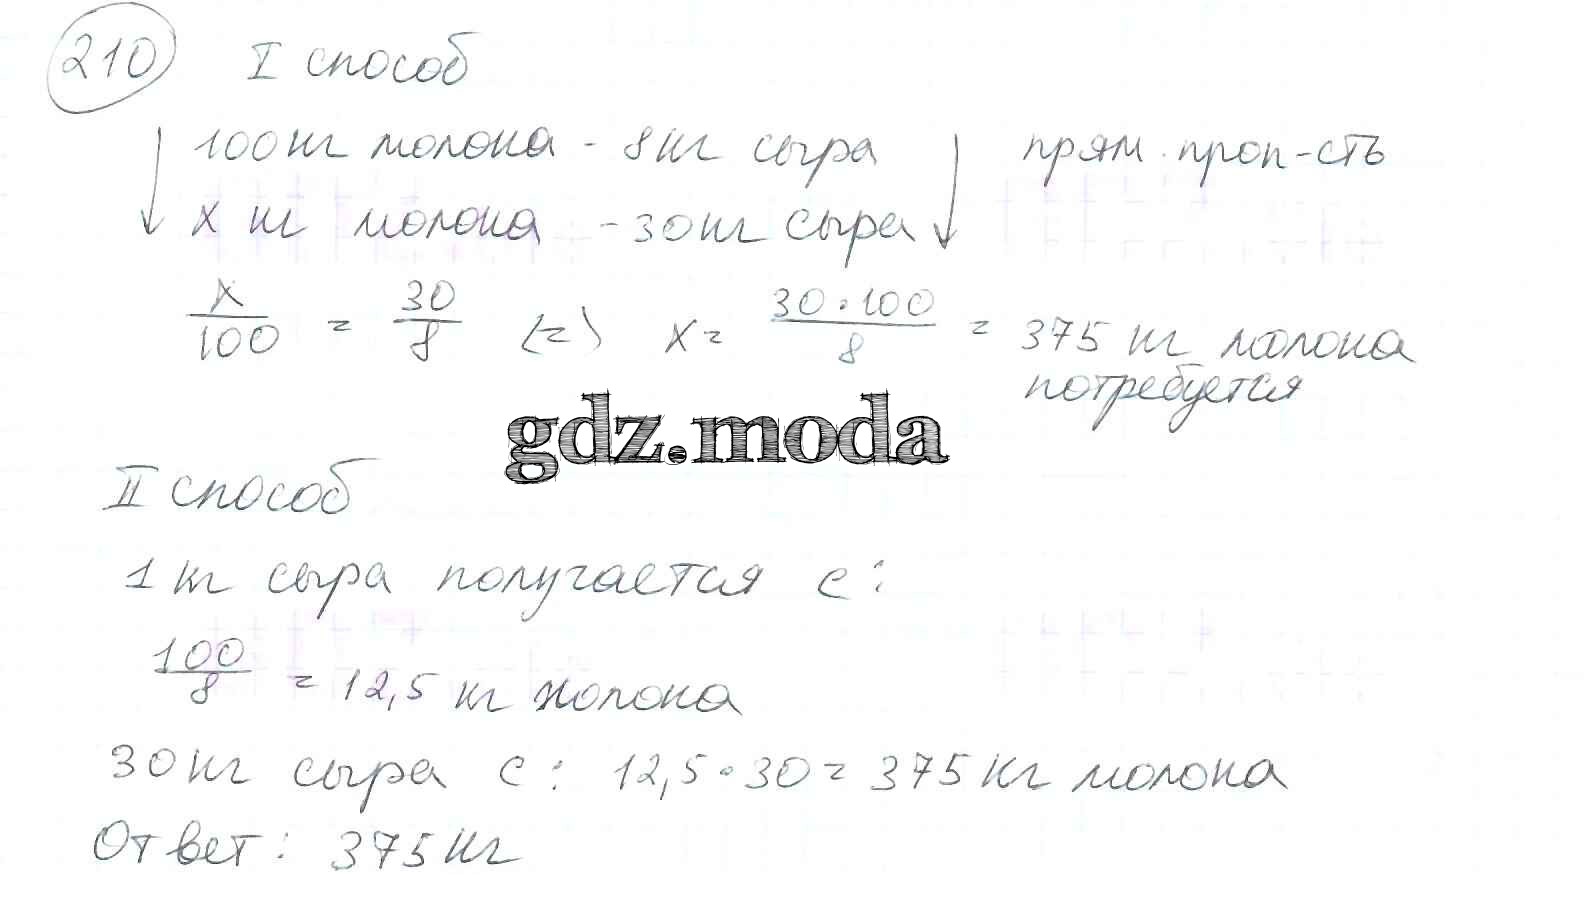 210 I способ
100 кг молока - 8 кг сыра прям. проп-сть
x кг молока - 30 кг сыра
x/100 = 30/8 (=) x = 30·100/8 = 375 кг молока
потребуется
gdz.moda
II способ
1 кг сыра получается с:
100/8 = 12,5 кг молока
30 кг сыра с: 12,5·30 = 375 кг молока
Ответ: 375 кг